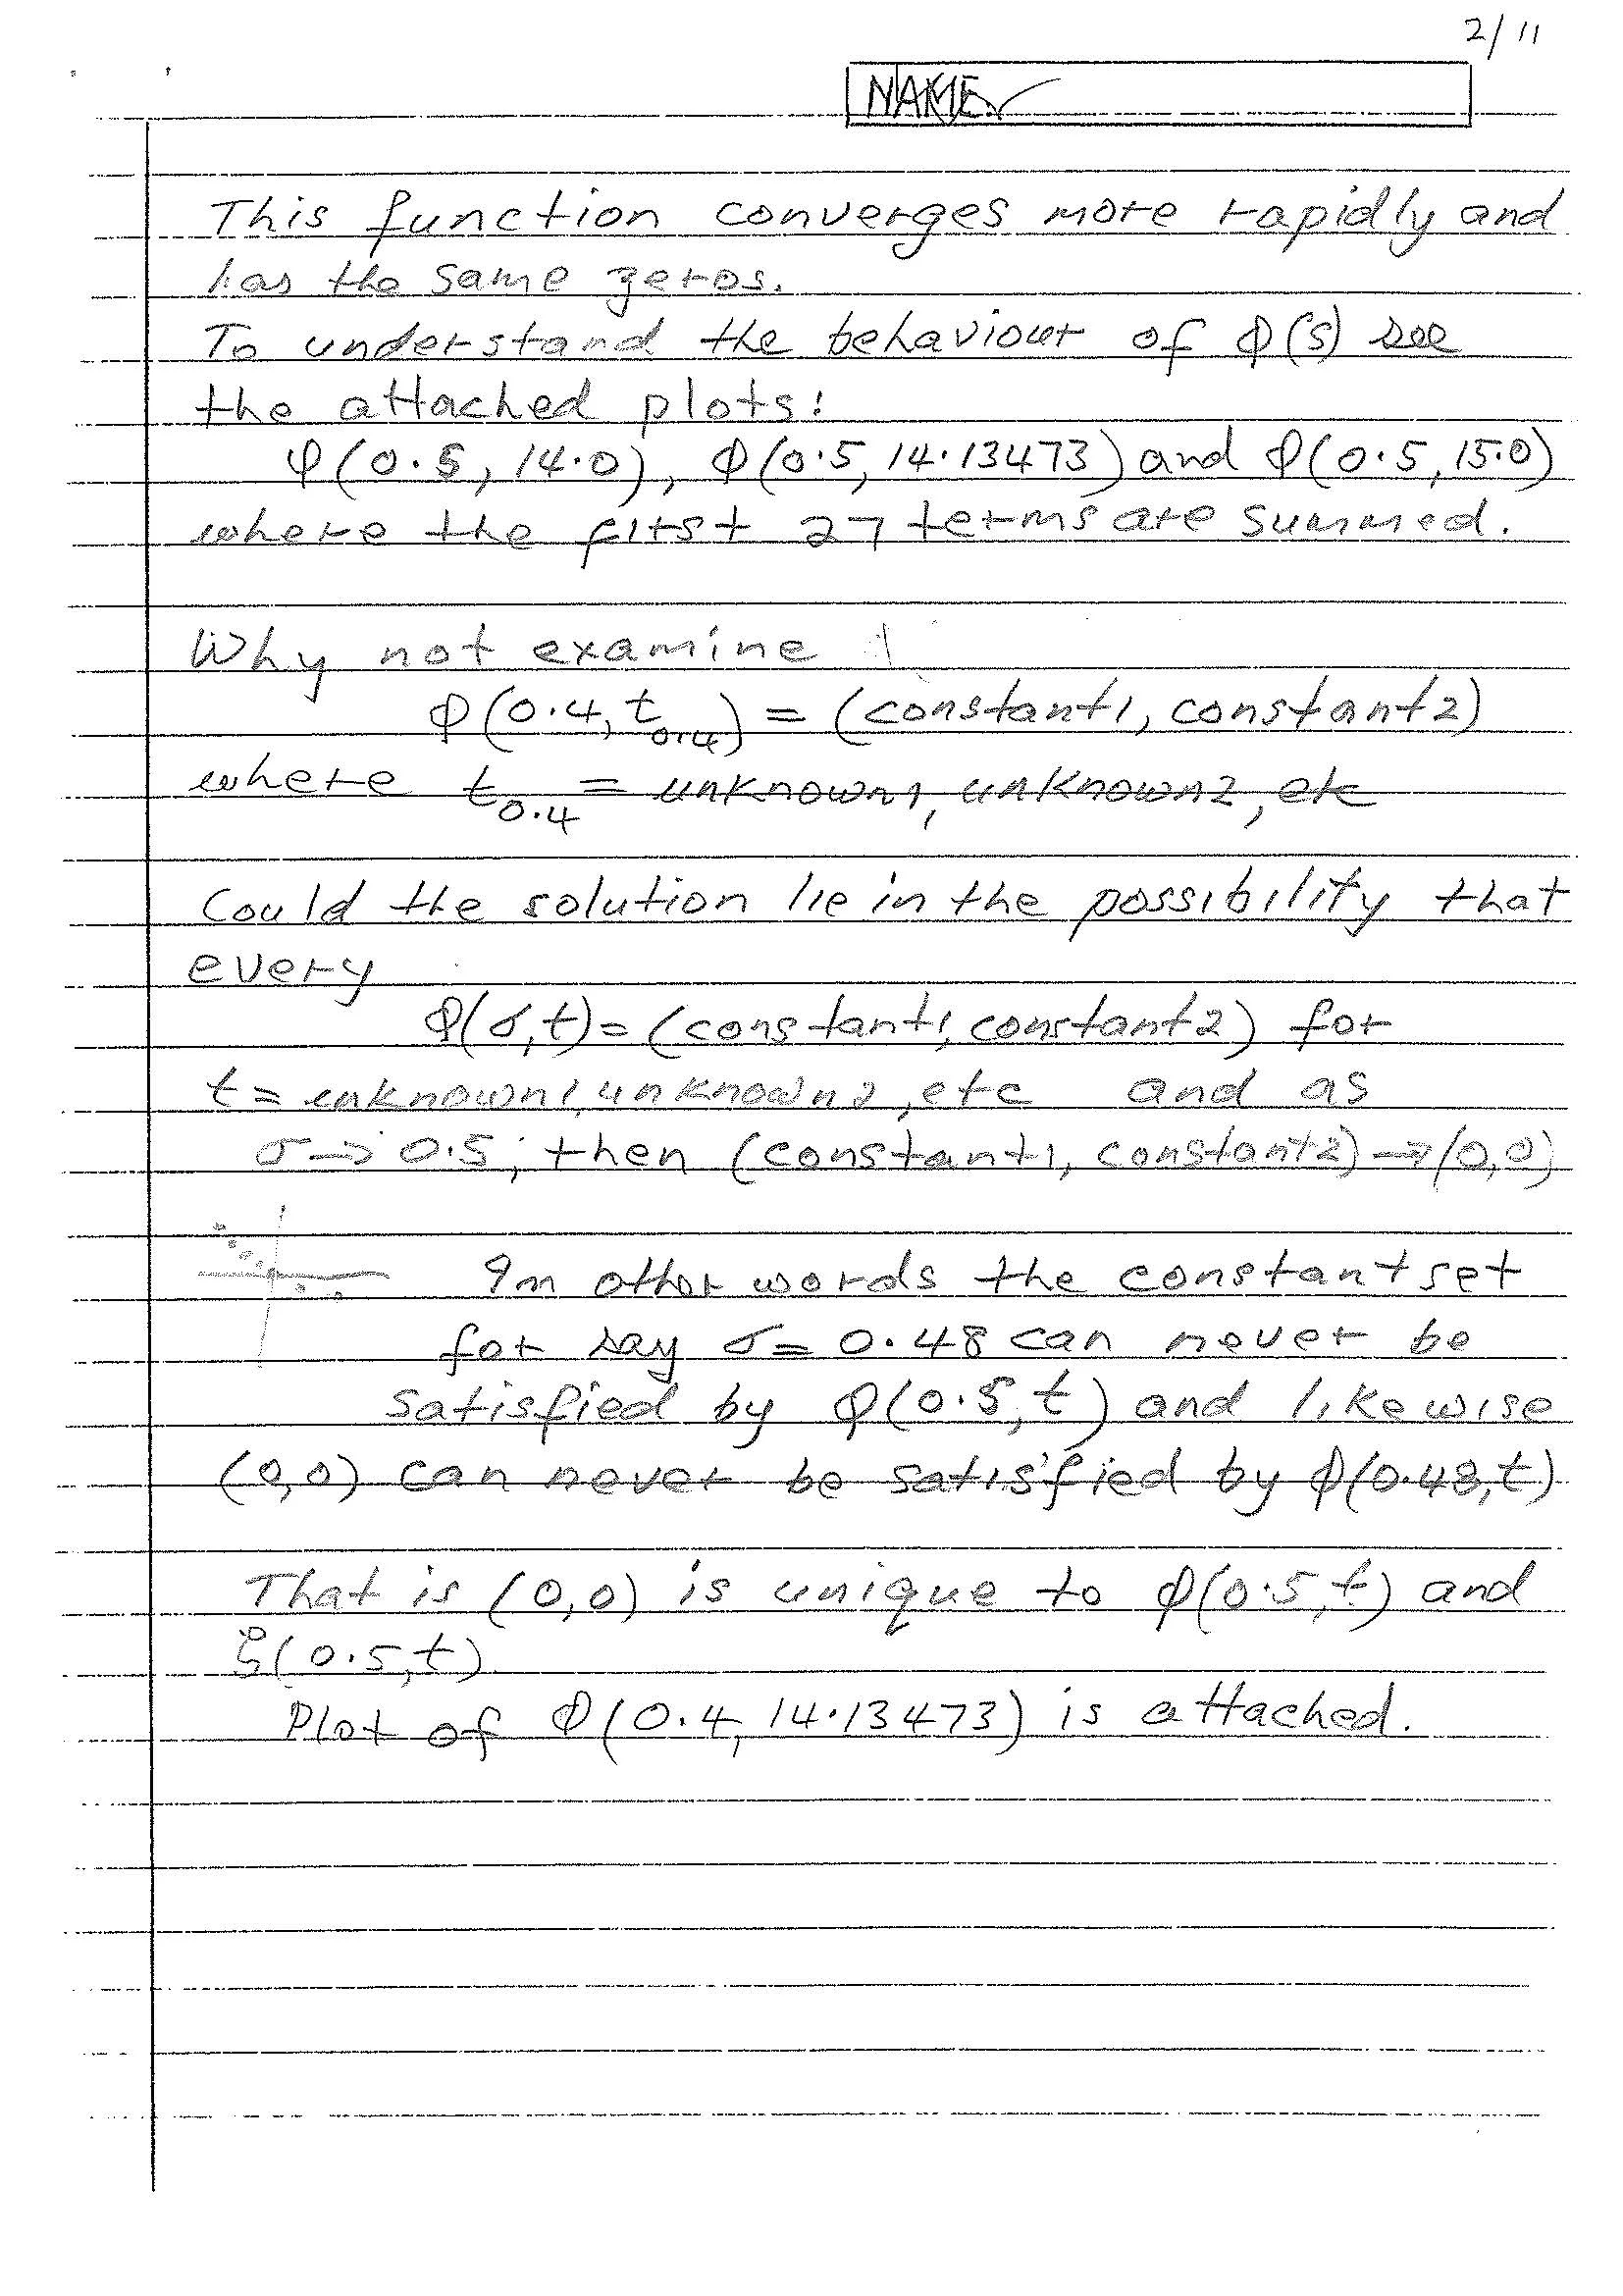 2/11
NAME
This function converges more rapidly and
has the same zeros.
To understand the behaviour of Φ(s) see
the attached plots:
Φ(0.5, 14.0), Φ(0.5, 14.13473) and Φ(0.5, 15.0)
where the first 27 terms are summed.
Why not examine
Φ(0.4, t0.4) = (constant1, constant2)
where t0.4 = unknown1, unknown2, etc
Could the solution lie in the possibility that
every
Φ(σ, t) = (constant1, constant2) for
t = unknown1, unknown2, etc and as
σ → 0.5, then (constant1, constant2) → (0,0)
In other words the constant set
for say σ = 0.48 can never be
satisfied by Φ(0.5, t) and likewise
(0,0) can never be satisfied by Φ(0.48, t)
That is (0,0) is unique to Φ(0.5, t) and
ζ(0.5, t)
Plot of Φ(0.4, 14.13473) is attached.